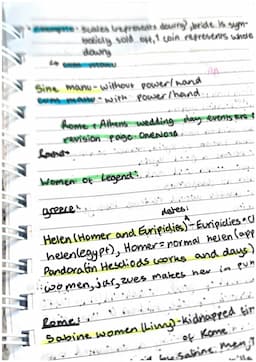 example - scales represents dowry, bride is sym-
bolicly sold off, 1 coin represents whole
dowry
↳ cum manu
Sine manu - without power/hand
cum manu - with power/hand
Rome + Athens wedding day events are
revision page. OneNote
Women of Legend:
greece: dates:
Helen (Homer and Euripidies) - Euripidies =
helen (egypt), Homer = normal helen
Pandora (in Hesiods works and days)
women, jar, zues makes her in
Rome:
Sabine women (Livy) - kidnapped
of Rome
Sabine men,